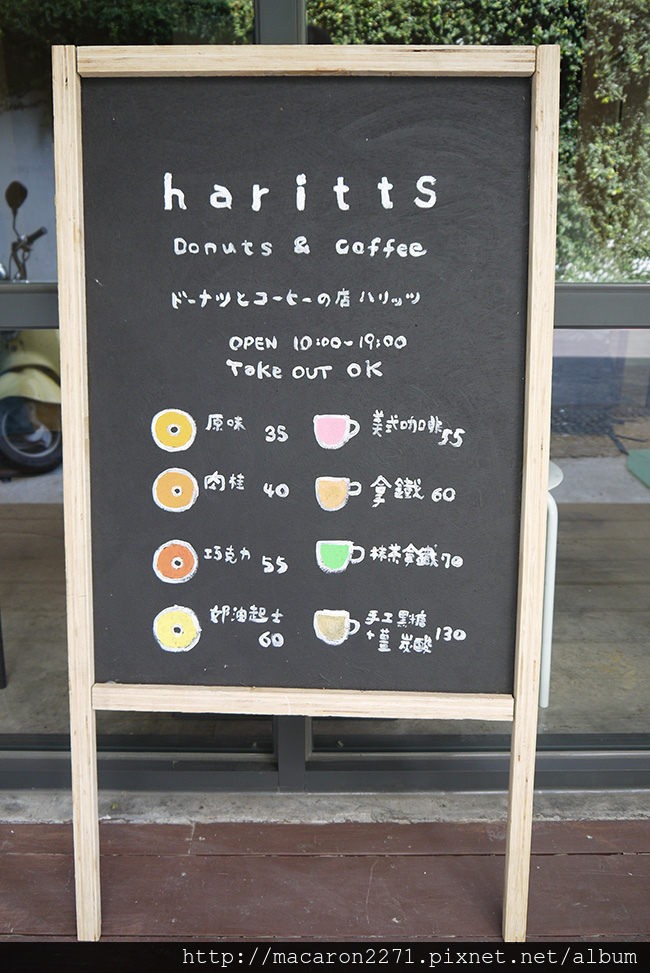 haritts
Donuts & Coffee
ドーナツとコーヒーの店 ハリッツ
OPEN 10:00-19:00
Take OUT OK
原味 35
美式咖啡 55
肉桂 40
拿鐵 60
巧克力 55
抹茶拿鐵 70
奶油起士 60
手工黑糖
+薑 炭酸 130
http://macaron2271.pixnet.net/album